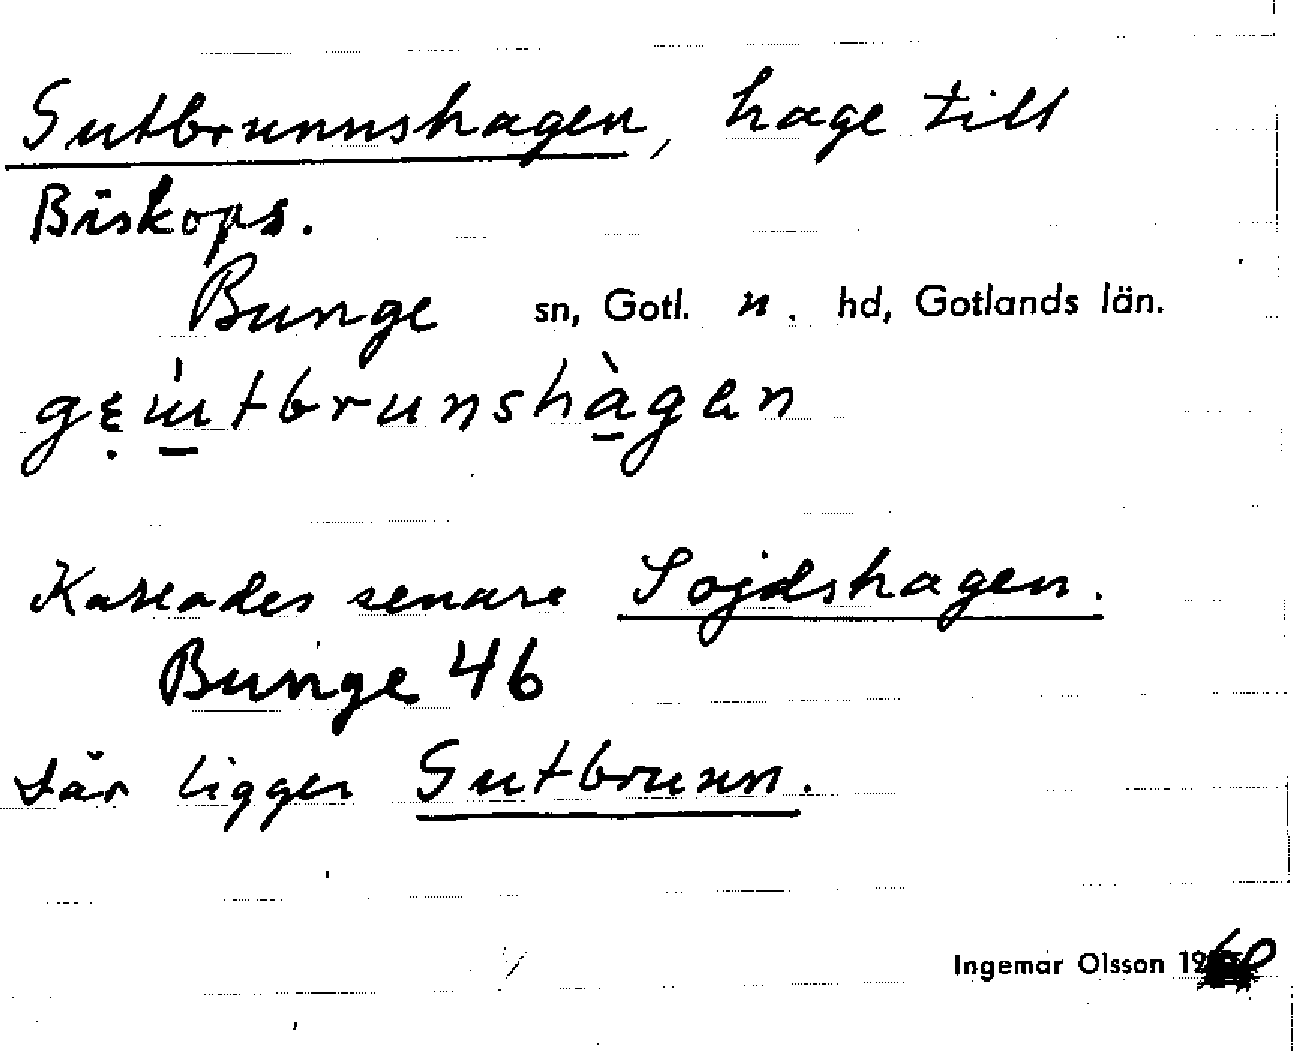 Gutbrunnshagen, hage till
Biskops.
Bunge sn, Gotl. n. hd, Gotlands län.
Kallades senare Sojdshagen.
Bunge 46
där ligger Gutbrunn.
Ingemar Olsson 1960